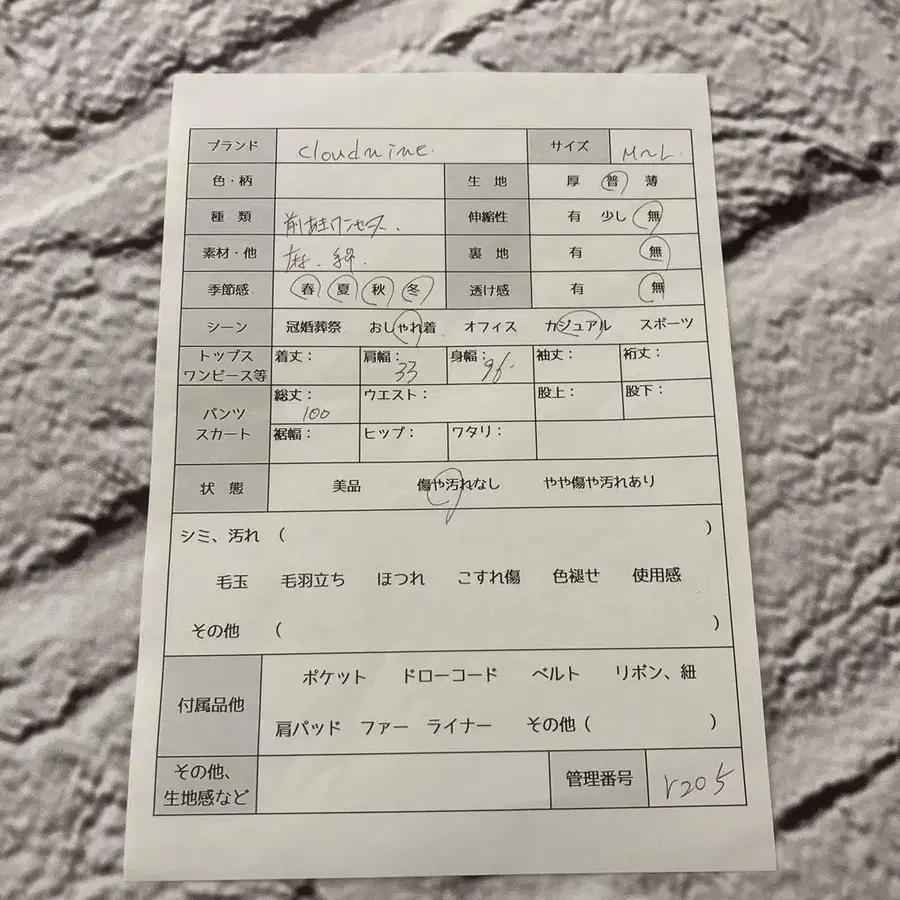 ブランド cloudnine. サイズ M〜L.
色・柄 生 地 厚 普 薄
種 類 前あきワンピース. 伸縮性 有 少し 無
素材・他 麻. 綿. 裏 地 有 無
季節感 春 夏 秋 冬 透け感 有 無
シーン 冠婚葬祭 おしゃれ着 オフィス カジュアル スポーツ
トップス ワンピース等 着丈： 肩幅：33 身幅：96. 袖丈： 裄丈：
パンツ スカート 総丈：100 ウエスト： 股上： 股下：
裾幅： ヒップ： ワタリ：
状 態 美品 傷や汚れなし やや傷や汚れあり
シミ、汚れ （ ）
毛玉 毛羽立ち ほつれ こすれ傷 色褪せ 使用感
その他 （ ）
付属品他 ポケット ドローコード ベルト リボン、紐
肩パッド ファー ライナー その他（ ）
その他、 生地感など 管理番号 r205